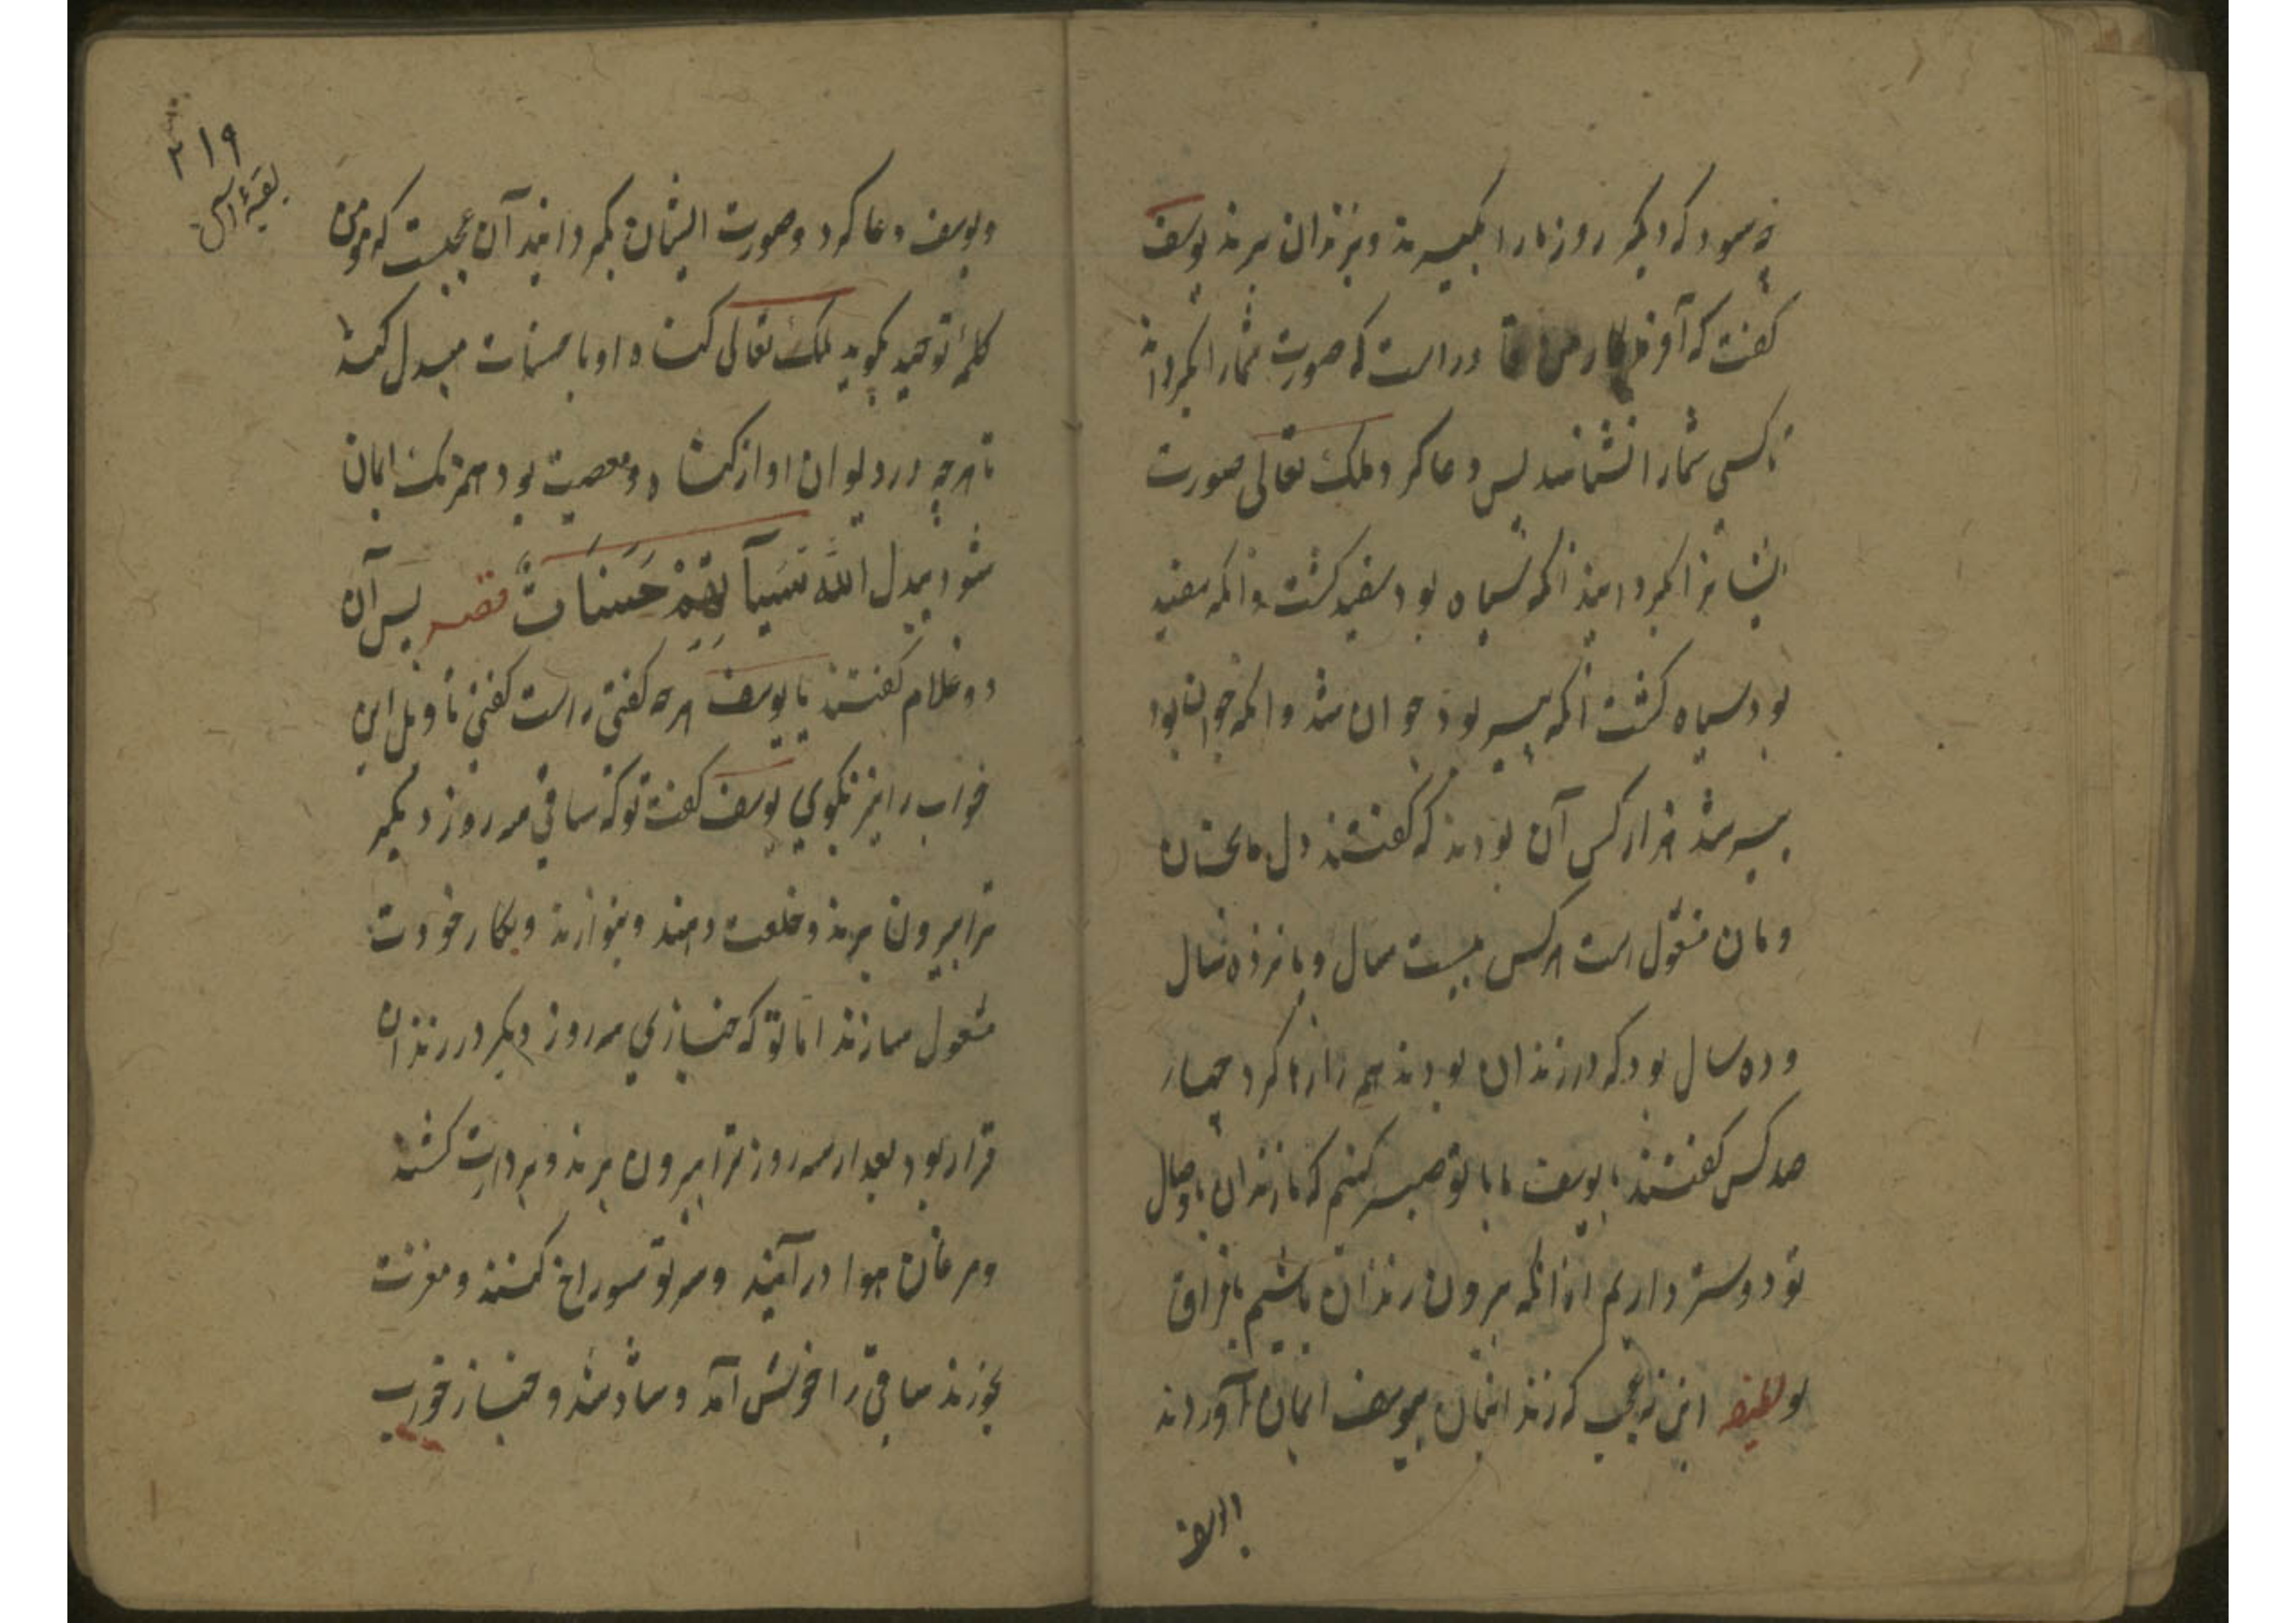 چه سود که دیگر روز ما را بگیرند و بزندان برند یوسف
گفت که آفریدگار من قادر است که صورت شما را بگرداند
تا کسی شما را نشناسد پس دعا کرد ملک تعالی صورت
ایشانرا بگردانید آنکه سیاه بود سفید گشت و آنکه سفید
بود سیاه گشت آنکه پیر بود جوان شد و آنکه جوان بود
پیر شد هزار کس آن بودند که گفتند دل ما بخان
و مان مشغول است هر کس بیست سال و پانزده سال
و ده سال بود که در زندان بودند همه را رها کرد چهار
صد کس گفتند یا یوسف ما با تو صبر کنیم که با زندان با وصال
تو دوستر داریم از آنکه بیرون زندان باشیم با فراق
تو لطیفه این نه عجب که زندانیان بیوسف ایمان آوردند
و یوسف
۲۱۹
و یوسف دعا کرد و صورت ایشان بگردانید آن عجبست که مومن
کلمهٔ توحید بگوید ملک تعالی گناه او با حسنات مبدل کند
تا هرچه در دیوان او از گناه و معصیت بود همه رنگ ایمان
شود یبدل الله سَیآتِهِمْ حَسَنَاتٍ قصه پس آن
دو غلام گفتند یا یوسف هر چه گفتی راست گفتی تاویل این
خواب را نیز بگوی یوسف گفت تو که ساقی سه روز دیگر
ترا بیرون برند و خلعت دهند و بنوازند و بکار خودت
مشغول سازند اما تو که خبازی سه روز دیگر در زندان
قرار بود بعد از سه روز ترا بیرون برند و بر دارت کشند
و مرغان هوا در آیند و سر تو سوراخ کنند و مغزت
بخورند ساقی را خوش آمد و شاد شد و خباز خوب